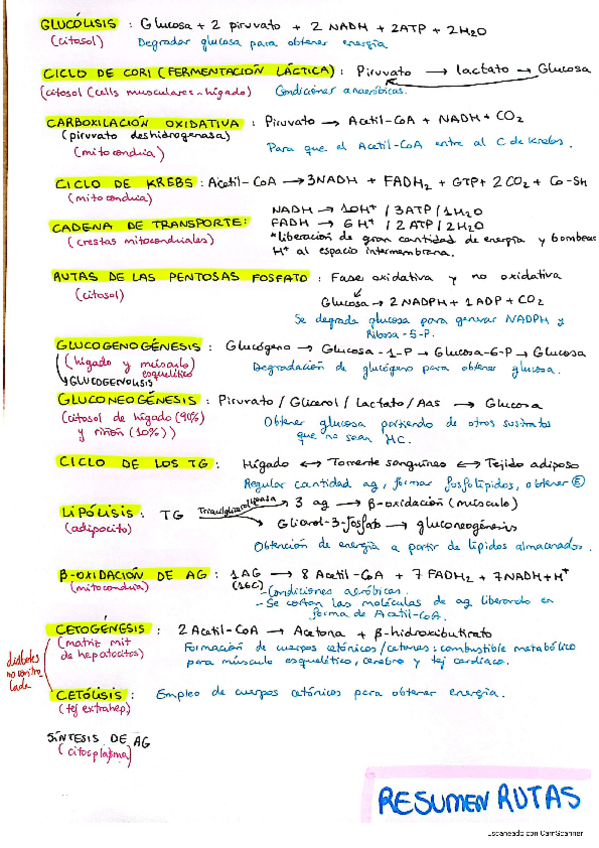 GLUCÓLISIS : Glucosa + 2 piruvato + 2 NADH + 2ATP + 2H2O
(citosol) Degradar glucosa para obtener energía
CICLO DE CORI (FERMENTACIÓN LÁCTICA) : Piruvato → lactato → Glucosa
(citosol (cells musculares - hígado) Condiciones anaeróbicas.
CARBOXILACIÓN OXIDATIVA : Piruvato → Acetil-CoA + NADH + CO2
(piruvato deshidrogenasa)
(mitocondria) Para que el Acetil-CoA entre al C de Krebs.
CICLO DE KREBS : Acetil-CoA → 3NADH + FADH2 + GTP + 2CO2 + Co-SH
(mitocondria)
CADENA DE TRANSPORTE: NADH → 10H+ / 3ATP / 1H2O
(crestas mitocondriales) FADH → 6H+ / 2ATP / 2H2O
*liberación de gran cantidad de energía y bombeas
H+ al espacio intermembrana.
RUTAS DE LAS PENTOSAS FOSFATO : Fase oxidativa y no oxidativa
(citosol) Glucosa → 2 NADPH + 1 ADP + CO2
Se degrada glucosa para generar NADPH y
Ribosa-5-P.
GLUCOGENOGÉNESIS : Glucógeno → Glucosa-1-P → Glucosa-6-P → Glucosa
(hígado y músculo esquelítico) Degradación de glucógeno para obtener glucosa.
GLUCOGENOLISIS
GLUCONEOGÉNESIS : Piruvato / Glicerol / Lactato / Aas → Glucosa
(citosol de hígado (90%) Obtener glucosa partiendo de otros sustratos
y riñón (10%)) que no sean HC.
CICLO DE LOS TG : Hígado ↔ Torrente sanguíneo ↔ Tejido adiposo
Regular cantidad ag, formar fosfolípidos, obtener E
LIPÓLISIS : TG → 3 ag → β-oxidación (músculo)
(adipocito) Glicerol-3-fosfato → gluconeogénesis
Obtención de energía a partir de lípidos almacenados.
β-OXIDACIÓN DE AG : 1AG → 8 Acetil-CoA + 7 FADH2 + 7NADH+H+
(mitocondria) (16C) -Condiciones aeróbicas.
- Se cortan las moléculas de ag liberando en
forma de Acetil-CoA.
CETOGÉNESIS : 2 Acetil-CoA → Acetona + β-hidroxibutirato
(matriz mit de hepatocitos) Formación de cuerpos cetónicos/cetonas : combustible metabólico
para músculo esquelético, cerebro y tej cardíaco.
diabetes no controlada
CETÓLISIS : Empleo de cuerpos cetónicos para obtener energía.
(tej extrahep)
SÍNTESIS DE AG
(citoplasma)
RESUMEN RUTAS
Escaneado con CamScanner